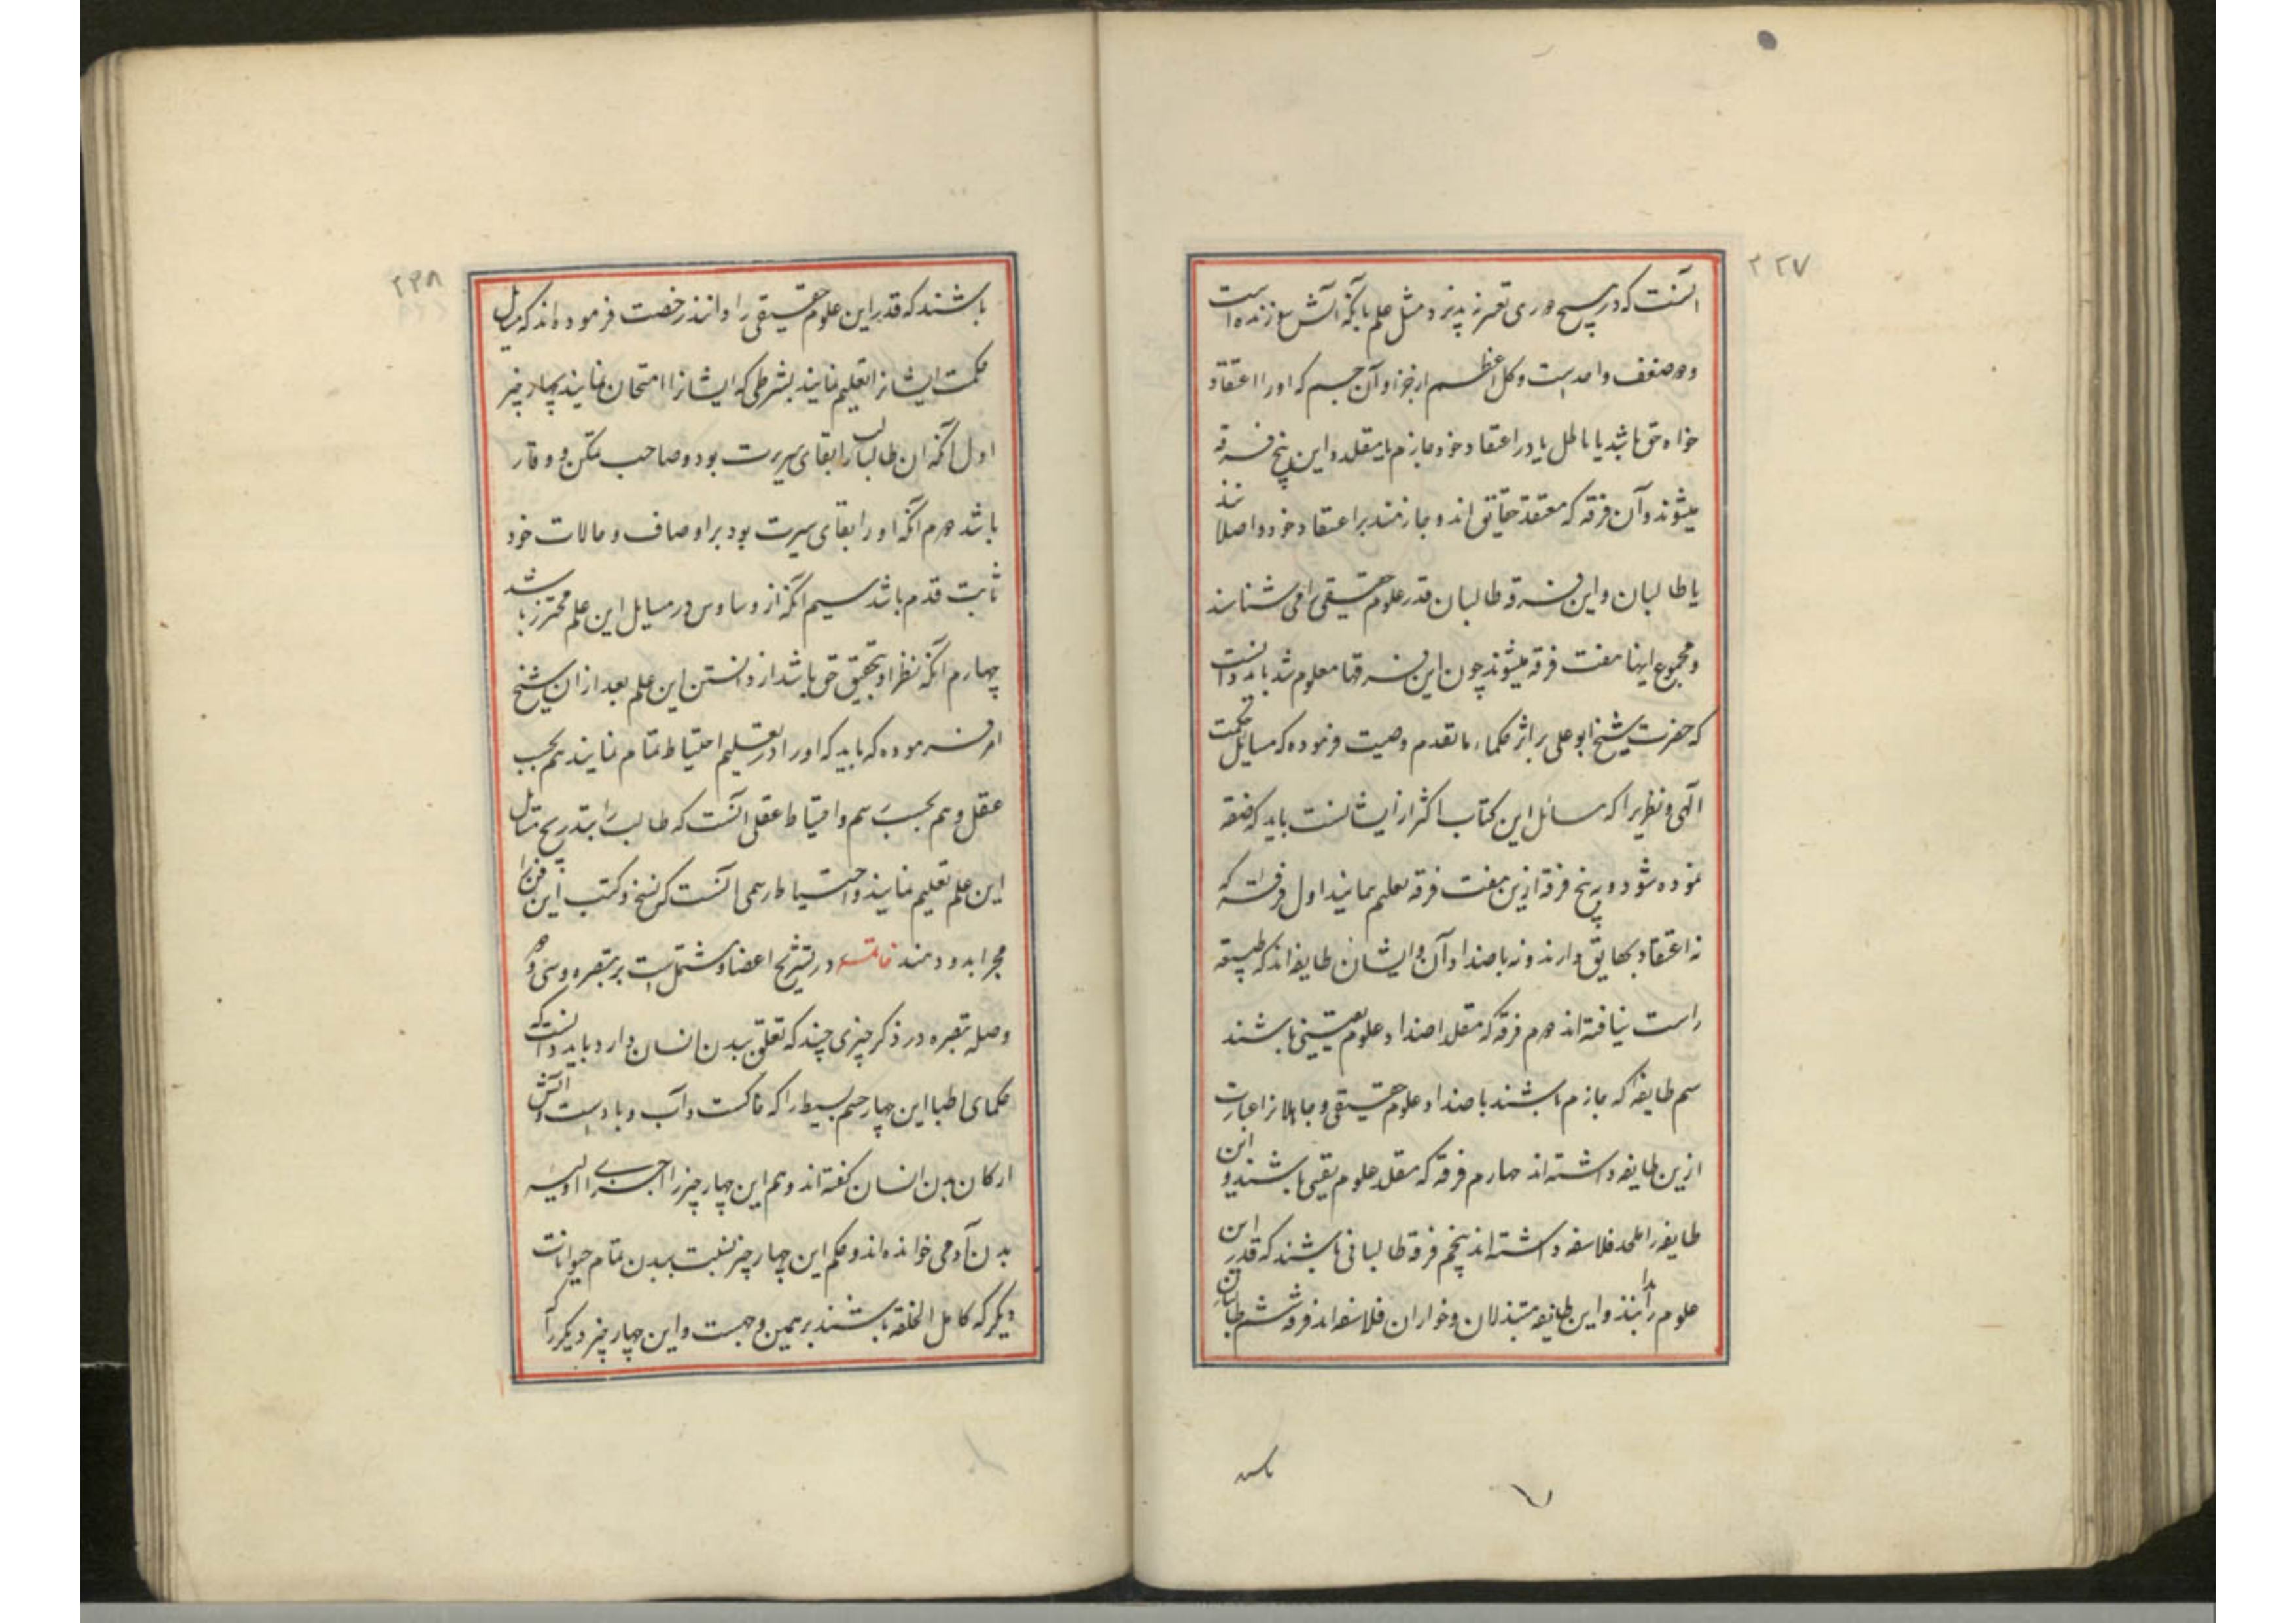 ۲۲۷
آنست که در هیچ دوری تغیر نپذیرد مثل علم بآنکه آتش سوزنده است
و دو ضعف واحد است و کل اعظم از جزو و آن جسم که او را اعتقاد
خواه حق باشد یا باطل یا در اعتقاد خود جازم یا مقلد و این پنج فرقه
میشوند و آن فرقه که معتقد حقایق اند و جازمند بر اعتقاد خود و اصلا
یا طالبان و این فرقه طالبان قدر علوم حقیقی را می شناسند
و مجموع اینها هفت فرقه میشوند چون این فرقها معلوم شد باید دانست
که حضرت شیخ ابو علی بر اثر حکماء ما تقدم وصیت فرموده که مسایل حکمت
الهی و نظیر را که مسائل این کتاب اکثر از ایشانست باید که
نموده شود و به پنج فرقه ازین هفت فرقه تعلیم ننمایند اول فرقه که
نه اعتقاد بحقایق دارند و نه باضداد آن و ایشان طایفه اند که
راست نیافته اند دوم فرقه که مقلد اضداد علوم یقینی باشند
سیم طایفه که جازم باشند باضداد علوم حقیقی و جاهلانرا عبارت
ازین طایفه داشته اند چهارم فرقه که مقلد علوم یقینی باشند و این
طایفه را ملحد فلاسفه داشته اند پنجم فرقه طالبانی باشند که قدر این
علوم را ندانند و این طایفه مبتذلان و خواران فلاسفه اند فرقه ششم طالبان
۲۲۸
باشند که قدر این علوم حقیقی را دانند رخصت فرموده اند که مسایل
حکمت ایشانرا تعلیم نمایند بشرطی که ایشانرا امتحان نمایند بچهار چیز
اول آنکه ان طالب را بقای سریرت بود و صاحب تمکن و وقار
باشد دوم آنکه او را بقای سیرت بود بر اوصاف و حالات خود
ثابت قدم باشد سیم آنکه از وساوس در مسایل این علم محترز باشد
چهارم آنکه نظر او بتحقیق حق باشد از دانستن این علم بعد از ان شیخ
امر فرموده که باید که او را در تعلیم احتیاط تمام نمایند هم بحسب
عقل و هم بحسب رسم و احتیاط عقلی آنست که طالب را بتدریج مسایل
این علم تعلیم نمایند و احتیاط رسمی آنست که نسخ و کتب این فن را
مجرا بدو دهند خاتمه در تشریح اعضا و مشتمل است بر تبصره و سی و دو
وصله تبصره در ذکر چیزی چند که تعلق ببدن انسان دارد باید دانست که
حکمای اطبا این چهار جسم بسیط را که خاکست و آب و باد است و آتش
ارکان بدن انسان گفته اند و هم این چهار چیز را اجزای اولیه
بدن آدمی خوانده اند و حکم این چهار چیز نسبت ببدن تمام حیوانات
دیگر که کامل الخلقه باشند بر همین وجهست و این چهار چیز دیگر را که